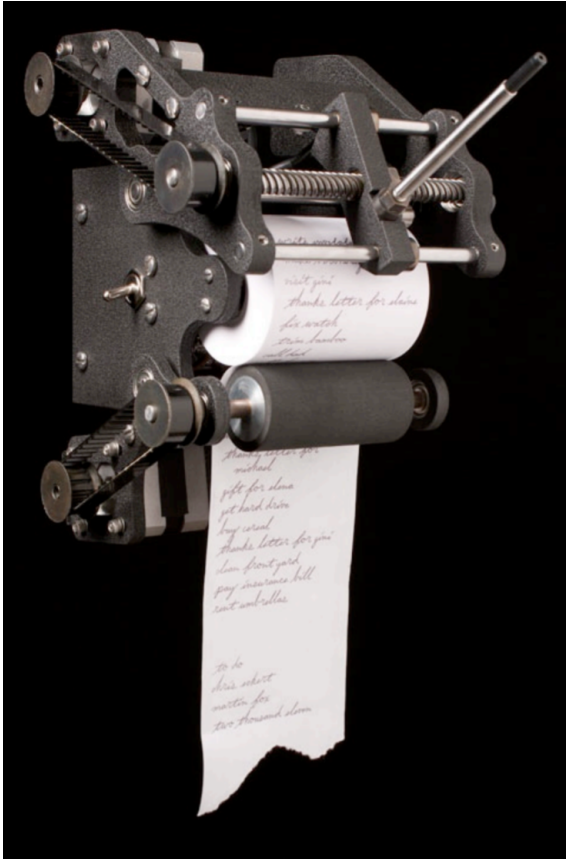 write
visit gini
thanks letter for elaine
fix watch
trim bamboo
call dad
thanks letter for
michael
gift for elena
get hard drive
buy cereal
thanks letter for gini
clean front yard
pay insurance bill
rent umbrellas
to do
chris eckert
martin fox
two thousand eleven